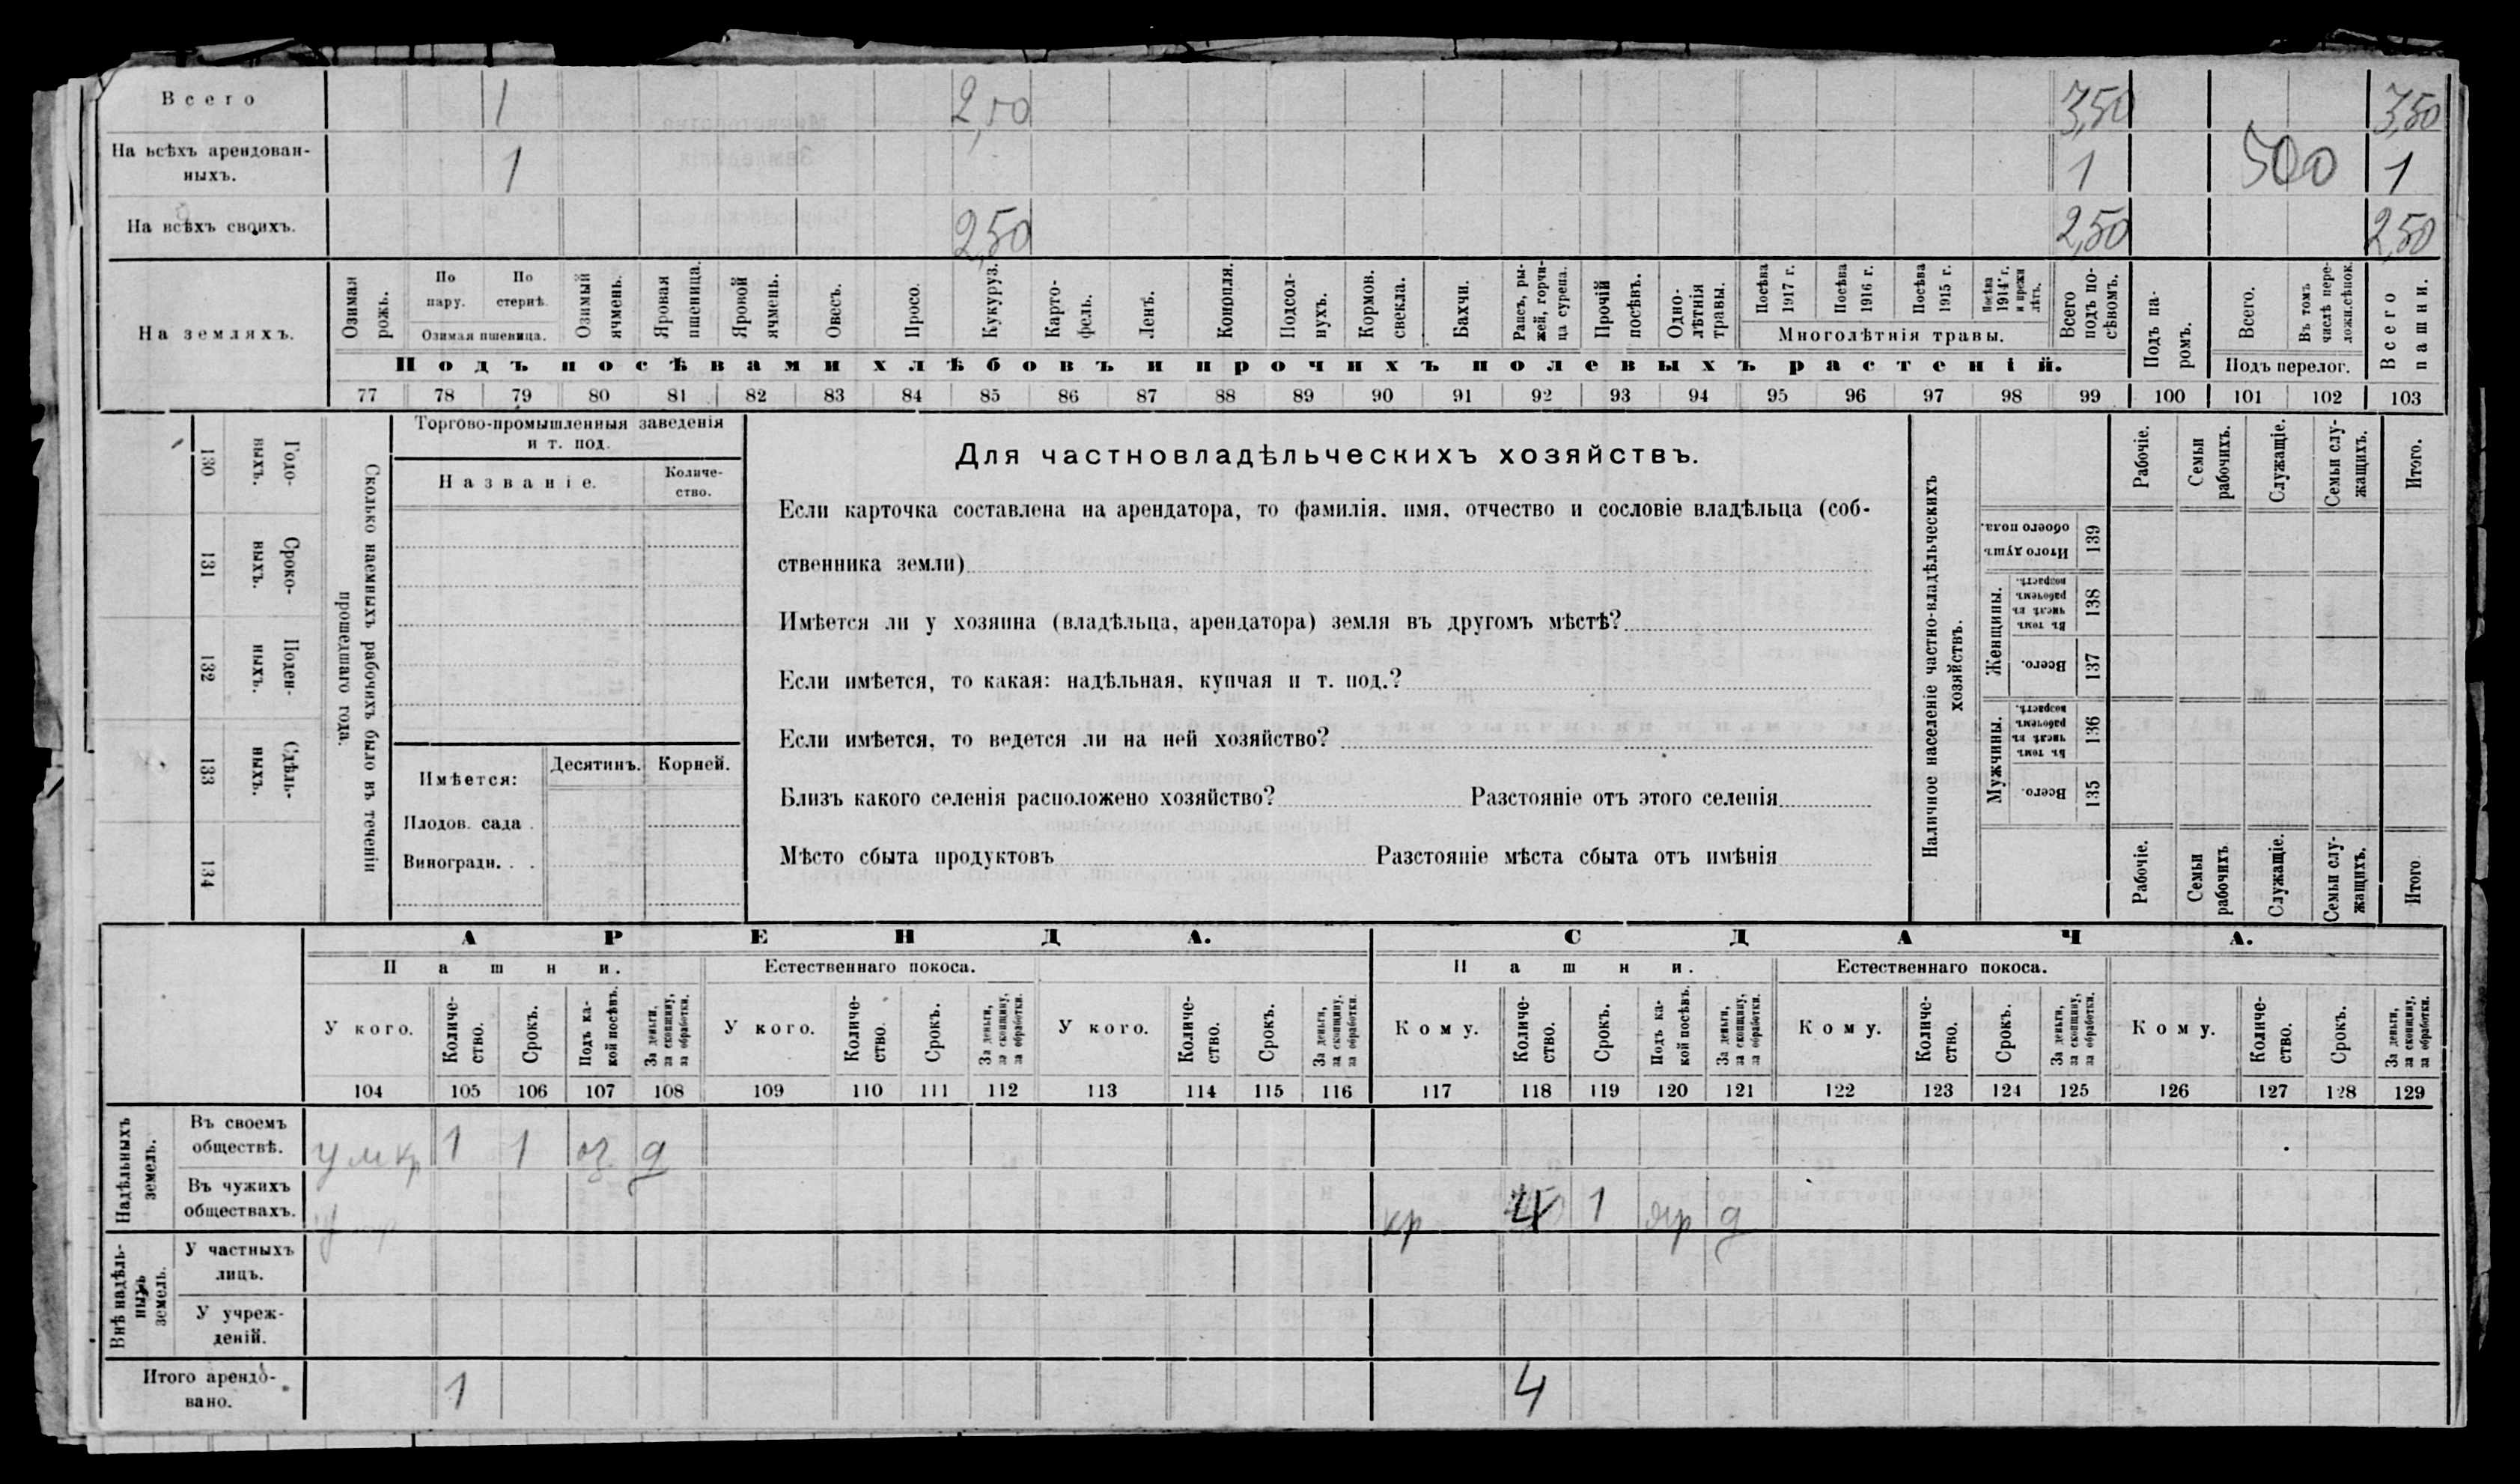 Всего 1 2,50 3,50 3,50
На всѣхъ арендован-
ныхъ. 1 1 500 1
На всѣхъ своихъ. 2,50 2,50 2,50
На земляхъ.
Озимая
рожь.
По
пару.
По
стернѣ.
Озимая пшеница.
Озимый
ячмень.
Яровая
пшеница.
Яровой
ячмень.
Овесъ.
Просо.
Кукуруз.
Карто-
фель.
Ленъ.
Конопля.
Подсол-
нухъ.
Кормов.
свекла.
Бахчи.
Рапсъ, ры-
жей, горчи-
ца сурепа.
Прочій
посѣвъ.
Одно-
лѣтнія
травы.
Посѣва
1917 г.
Посѣва
1916 г.
Посѣва
1915 г.
Посѣва
1914 г.
и прежн
лѣтъ.
Многолѣтнія травы.
Всего
подъ по-
сѣвомъ.
Подъ па-
ромъ.
Всего.
Въ томъ
числѣ пере-
ложн.сѣнок.
Подъ перелог.
Всего
пашни.
Подъ посѣвами хлѣбовъ и прочихъ полевыхъ растеній.
77 78 79 80 81 82 83 84 85 86 87 88 89 90 91 92 93 94 95 96 97 98 99 100 101 102 103
Сколько наемныхъ рабочихъ было въ теченіи
прошедшаго года.
Годо-
выхъ.
130
Сроко-
ныхъ.
131
Поден-
ныхъ.
132
Сдѣль-
ныхъ.
133
134
Торгово-промышленныя заведенія
и т. под.
Названіе.
Количе-
ство.
Имѣется:
Десятинъ. Корней.
Плодов. сада .
Виноградн. . .
Для частновладѣльческихъ хозяйствъ.
Если карточка составлена на арендатора, то фамилія, имя, отчество и сословіе владѣльца (соб-
ственника земли)
Имѣется ли у хозяина (владѣльца, арендатора) земля въ другомъ мѣстѣ?
Если имѣется, то какая: надѣльная, купчая и т. под.?
Если имѣется, то ведется ли на ней хозяйство?
Близъ какого селенія расположено хозяйство? Разстояніе отъ этого селенія
Мѣсто сбыта продуктовъ Разстояніе мѣста сбыта отъ имѣнія
Наличное населеніе частно-владѣльческихъ
хозяйствъ.
Рабочіе.
Семьи
рабочихъ.
Служащіе.
Семьи слу-
жащихъ.
Итого.
Итого душъ
обоего пола.
139
Женщины.
Въ томъ
числѣ въ
рабочемъ
возрастѣ.
138
Всего.
137
Мужчины.
Въ томъ
числѣ въ
рабочемъ
возрастѣ.
136
Всего.
135
Рабочіе.
Семьи
рабочихъ
Служащіе.
Семьи слу-
жащихъ.
Итого
АРЕНДА. СДАЧА.
Пашни. Естественнаго покоса. Пашни. Естественнаго покоса.
У кого.
Количе-
ство.
Срокъ.
Подъ ка-
кой посѣвъ.
За деньги,
за скопщину,
за обработки.
У кого.
Количе-
ство.
Срокъ.
За деньги,
за скопщину,
за обработки.
У кого.
Количе-
ство.
Срокъ.
За деньги,
за скопщину,
за обработки.
Кому.
Количе-
ство.
Срокъ.
Подъ ка-
кой посѣвъ.
За деньги,
за скопщину,
за обработки.
Кому.
Количе-
ство.
Срокъ.
За деньги,
за скопщину,
за обработки.
Кому.
Количе-
ство.
Срокъ.
За деньги,
за скопщину,
за обработки.
104 105 106 107 108 109 110 111 112 113 114 115 116 117 118 119 120 121 122 123 124 125 126 127 128 129
Надѣльныхъ
земель.
Въ своемъ
обществѣ. 1 1 оз. д
Въ чужихъ
обществахъ. кр 4 1 яр д
Внѣ надѣль-
ныхъ
земель.
У частныхъ
лицъ.
У учреж-
деній.
Итого арендо-
вано. 1 4